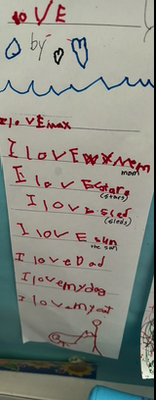 love
by
I lovEmax
I lovE mom
mom
I lovE stars
(stars)
I lov sled
(sleds)
I lovE sun
the sun
I loveDad
I lovemydog
I lovemycat